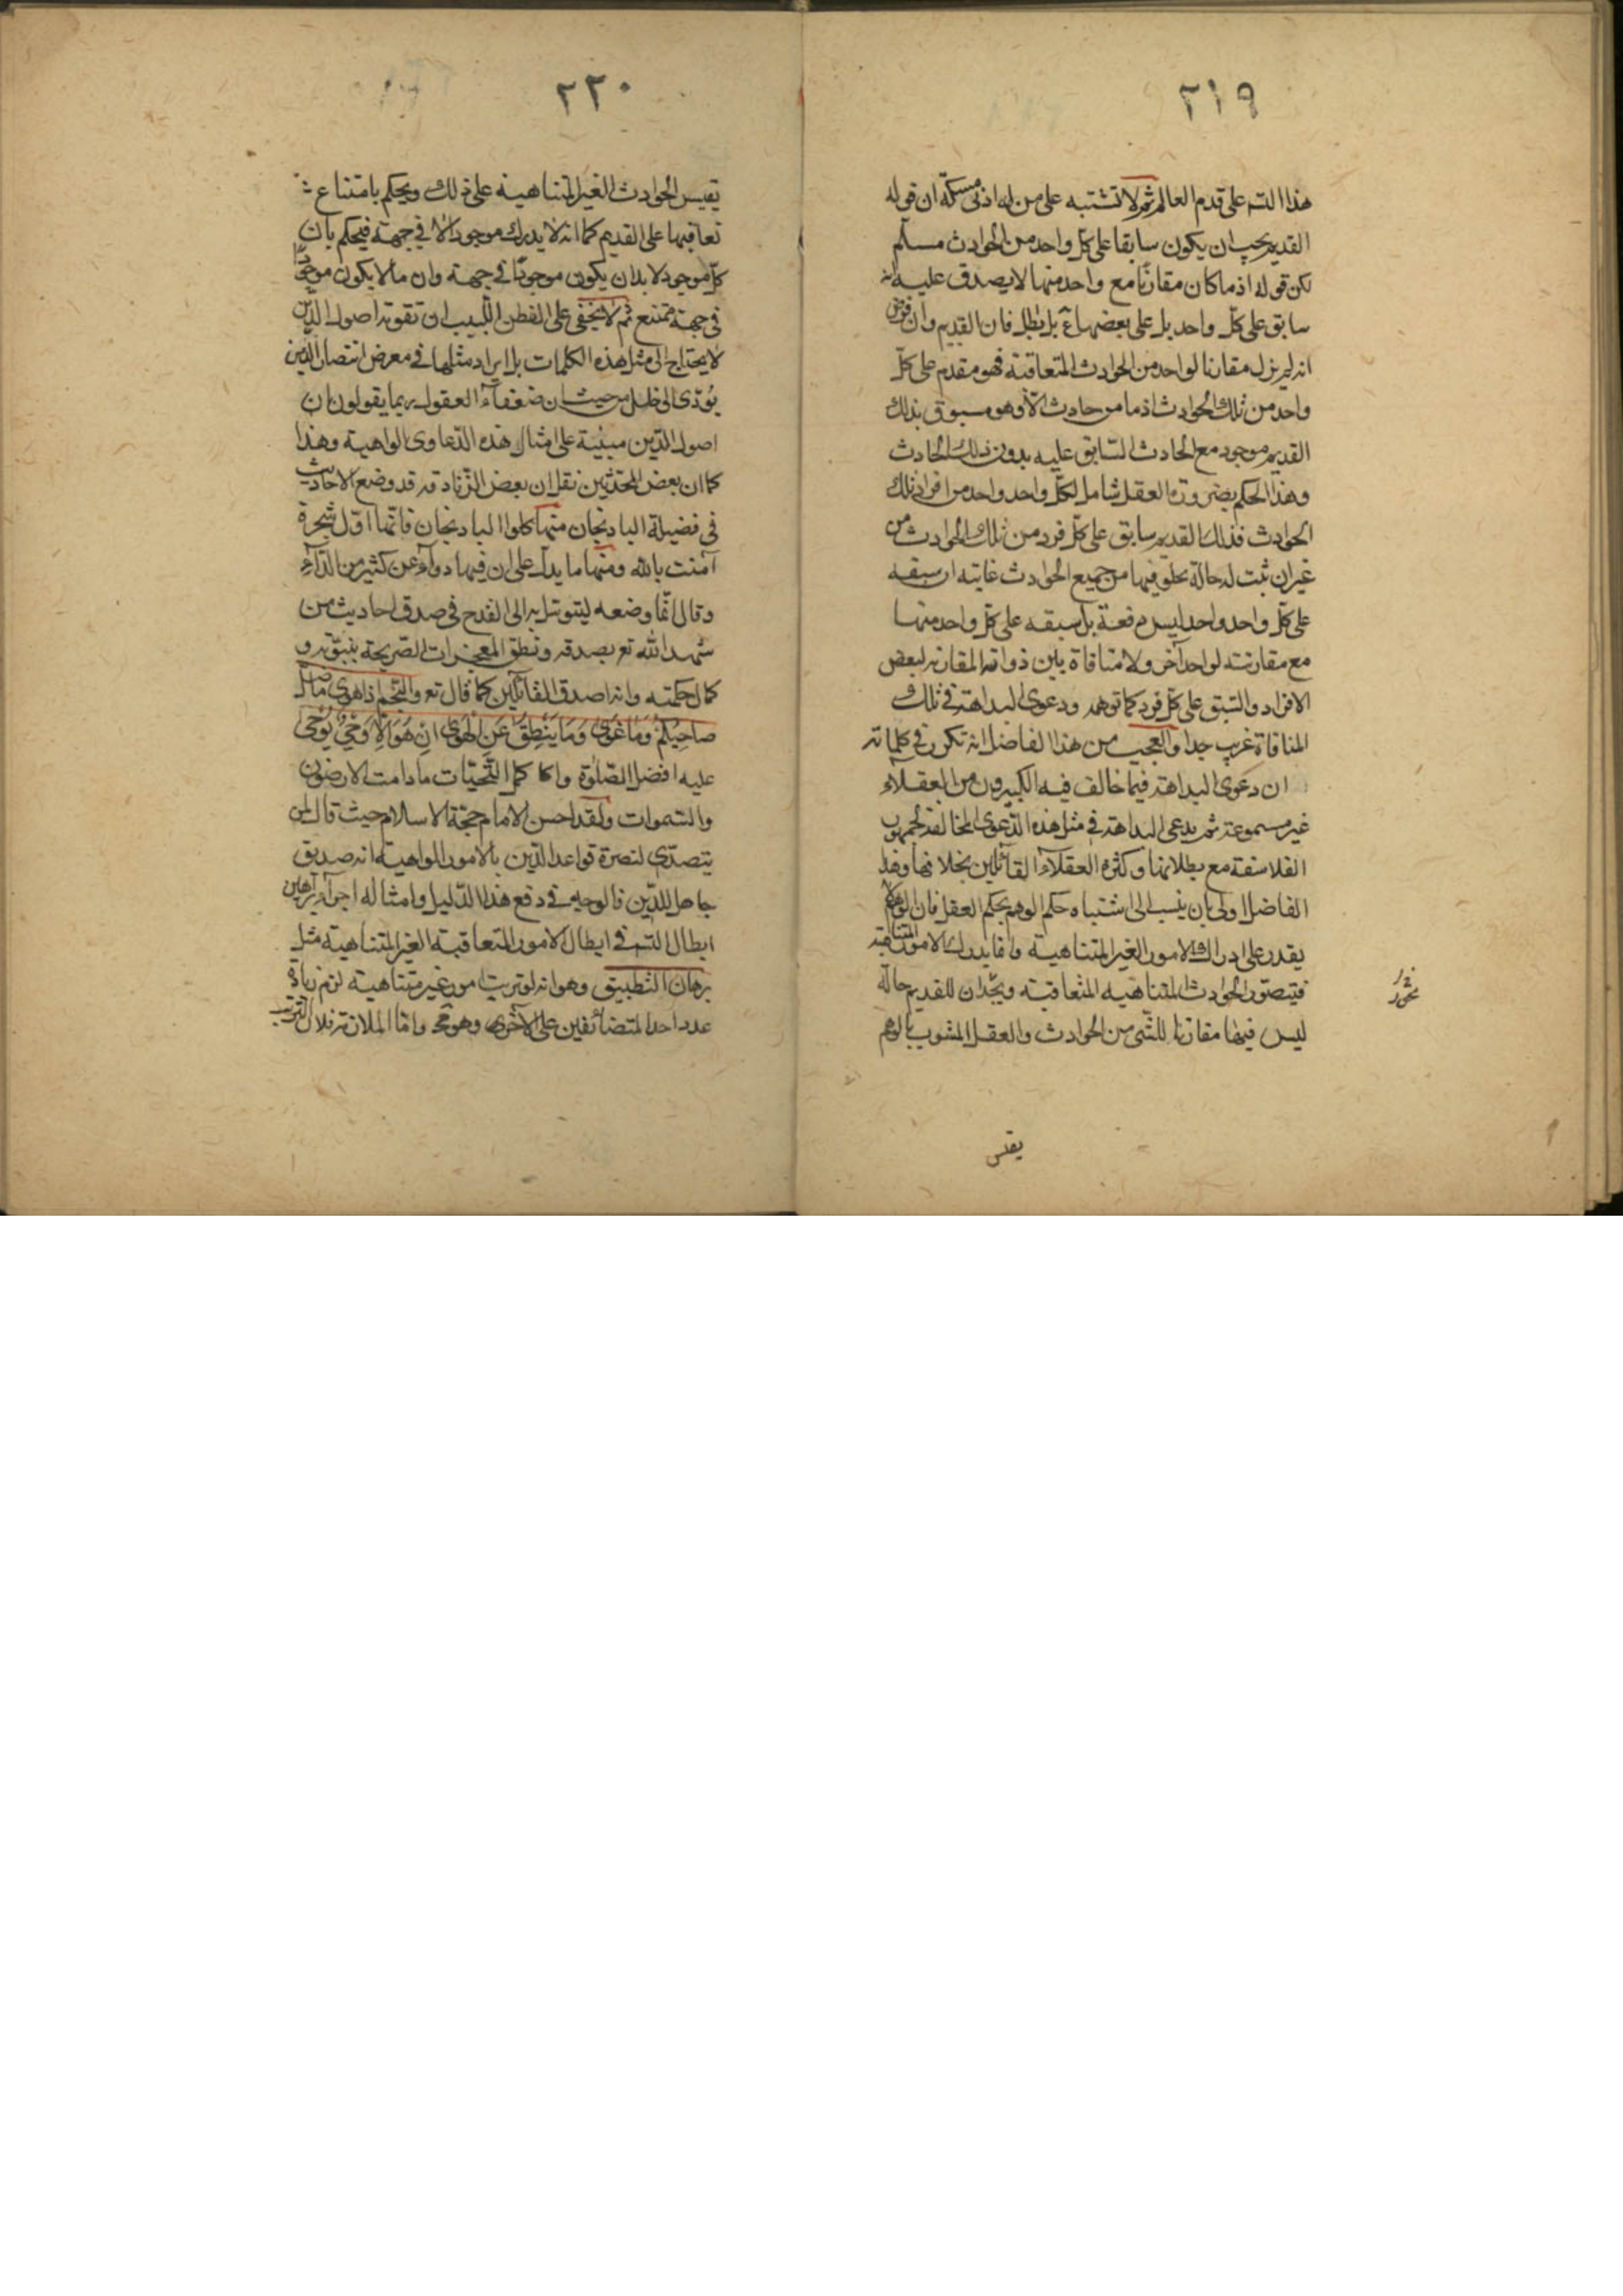 ٢١٩
هذا التسه على قدم العالم ثم لا تشتبه على من له ادنى مسكة ان قوله
القديم يجب ان يكون سابقا على كل واحد من الحوادث مسلم
لكن قوله اذ ما كان مقارنا مع واحد منها لا يصدق عليه انه
سابق على كل واحد بل على بعضها م بل بطل فان القديم وان فرض
انه لم يزل مقارنا لواحد من الحوادث المتعاقبة فهو مقدم على كل
واحد من تلك الحوادث اذ ما من حادث الا وهو مسبوق بذلك
القديم موجود مع الحادث السابق عليه بدون ذلك الحادث
وهذا الحكم بضرورة العقل شامل لكل واحد واحد من افراد تلك
الحوادث فذلك القديم سابق على كل فرد من تلك الحوادث من
غير ان ثبت له حالة يخلو فيها من جميع الحوادث غايته ان سبقه
على كل واحد واحد ليس دفعة بل سبقه على كل واحد منها
مع مقارنته لواحد آخر ولا منافاة بين ذواته المقارنه لبعض
الافراد والسبق على كل فرد كما توهمه ودعوى البداهة في تلك
المنافاة غريب جدا والعجب من هذا الفاضل انه تكرر في كلماته
ان دعوى البداهة فيما خالف فيه الكثيرون من العقلاء
غير مسموعة ثم يدعى البداهة في مثل هذه الدعوى المخالفة لجمهور
الفلاسفة مع بطلانها وكثرة العقلاء القائلين بخلافها وهذا
الفاضل اولى بان ينسب الى اشتباه حكم الوهم بحكم العقل فان الوهم لا
يقدر على ادراك الامور الغير المتناهية وانما يدرك الامور المتناهية
فيتصور الحوادث المتناهيه المتعاقبة ويجد ان للقديم حالة
ليس فيها مقارنا للشئ من الحوادث والعقل المشوب بالوهم
يقيس
٢٢٠
يقيس الحوادث الغير المتناهية على ذلك ويحكم بامتناع
تعاقبها على القديم كما انه لا يدرك موجودا الا في جهة فيحكم بان
كل موجود لا بد ان يكون موجودا في جهة وان ما لا يكون موجودا
في جهة ممتنع ثم لا يخفى على الفطن اللبيب ان تقوية اصول الدين
لا يحتاج الى مثل هذه الكلمات بل ايراد مثلها في معرض انتصار الدين
يؤدى الى خلل من حيث ان ضعفاء العقول ربما يقولون ان
اصول الدين مبنية على امثال هذه الدعاوى الواهية وهذا
كما ان بعض المحدثين نقل ان بعض الزنادقه قد وضع الاحاديث
في فضيلة البادنجان منها كلوا البادنجان فانها اول شجرة
آمنت بالله ومنها ما يدل على ان فيها دواء عن كثير من الداء
وقال انما وضعه ليتوسل به الى القدح في صدق احاديث من
شهد الله تع بصدقه ونطق المعجزات الصريحة بنبوته و
كمال حكمته وانه اصدق القائلين كما قال تع والنجم اذا هوى ما ضل
صاحبكم وما غوى وما ينطق عن الهوى ان هو الا وحى يوحى
عليه افضل الصلوة واكمل التحيات ما دامت الارضون
والسموات ولقد احسن الامام حجة الاسلام حيث قال لمن
يتصدى لنصرة قواعد الدين بالامور الواهية انه صديق
جاهل للدين فالوجه في دفع هذا الدليل وامثاله اجراء براهين
ابطال التسه في ابطال الامور المتعاقبة الغير المتناهية مثل
برهان التطبيق وهو انه لو ترتب امور غير متناهية لزم زيادة
عدد احد المتضائفين على الآخر وهو مح واما الملازمة فلان الترتيب